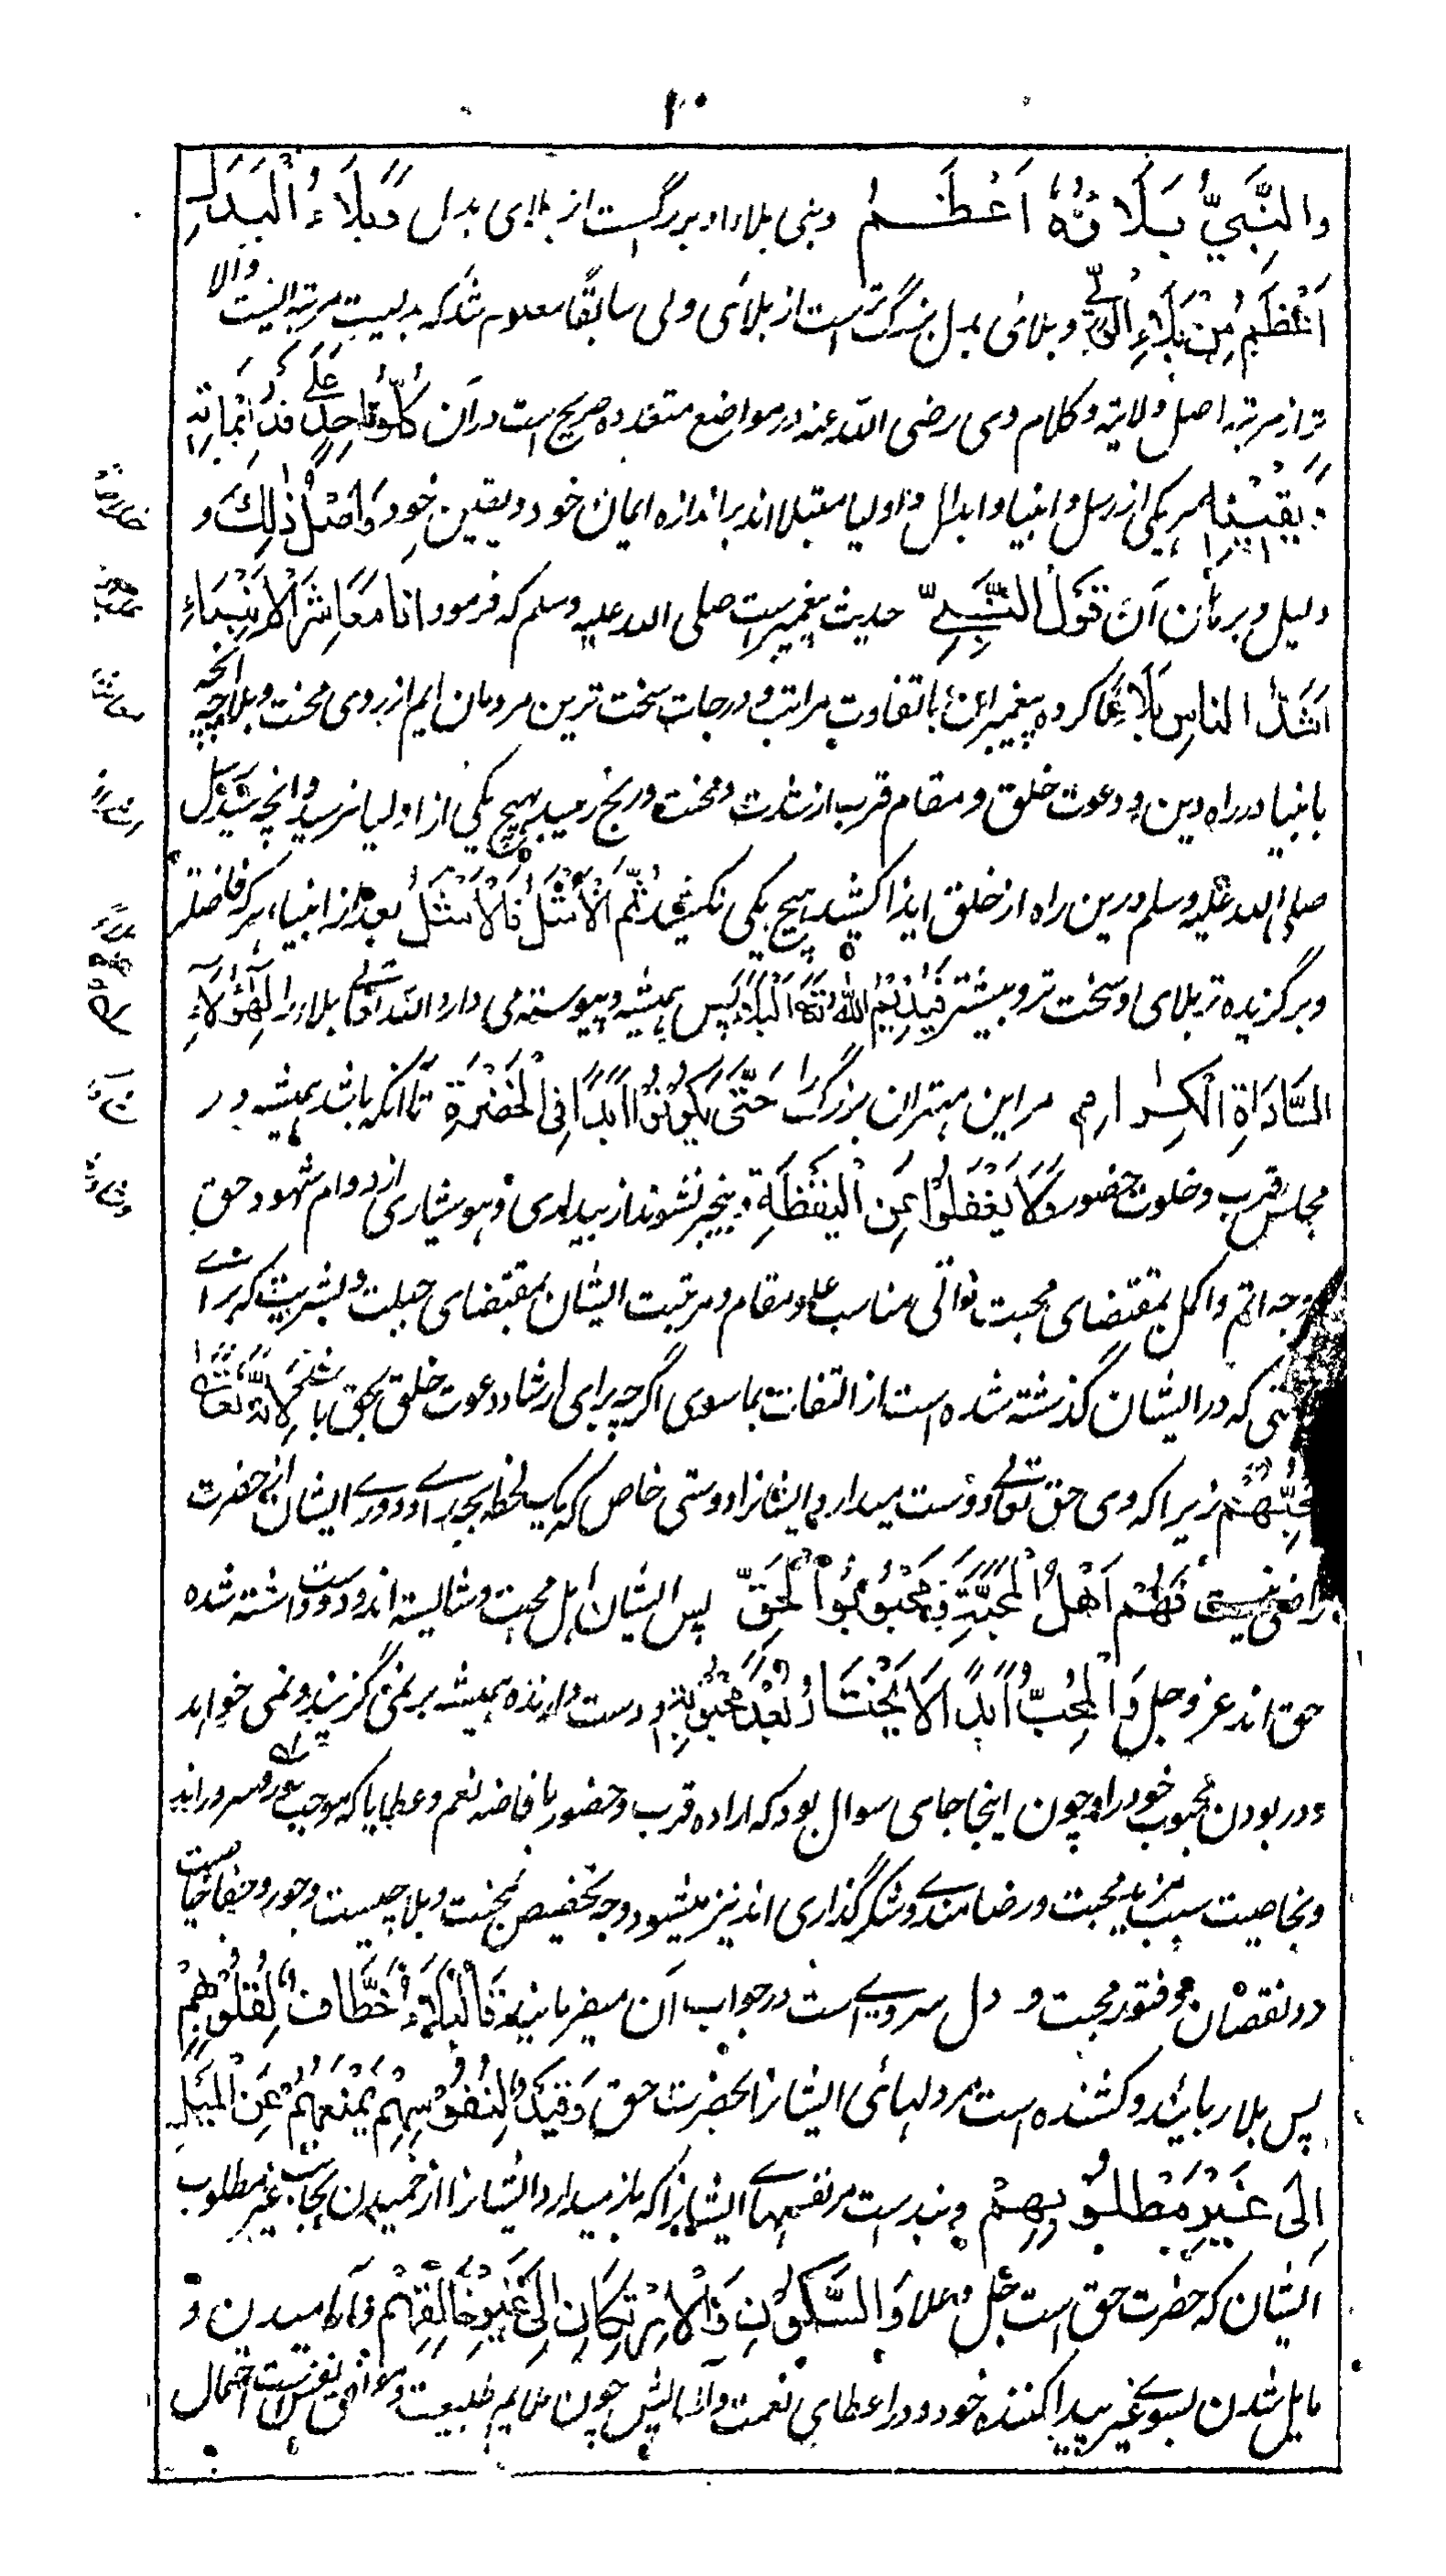 ۲۰
والنَّبِيُّ بَلَاؤُهُ اَعْظَمُ ونبی بلاء او بزرگست از بلای بدل وَبَلَاءُ الْبَدَلِ
اَعْظَمُ مِنْ بَلَاءِ الْوَلِيِّ وبلائی بدل بزرگ تر است از بلائی ولی سابقًا معلوم شد که بدلیت مرتبه ایست والا
تر از مرتبه اصل ولایة وکلام وی رضی الله عنه در مواضع متعدده صریح است در آن كُلُّ وَاحِدٍ عَلَى قَدْرِ اِيْمَانِهِ
وَيَقِيْنِهِ هر یکی از رسل وانبیا وابدال واولیا مبتلا اند بر اندازه ایمان خود ویقین خود وَاَصْلُ ذٰلِكَ و
دلیل وبرهان آن قَوْلُ النَّبِيِّ حدیث پیغمبر است صلی الله علیه وسلم که فرمود انا مَعَاشِرَ الْاَنْبِيَاءِ
اَشَدُّ الناسِ بَلَاءً ما گروه پیغمبران با تفاوت مراتب ودرجات سخت ترین مردمان ایم از روی محنت وبلا چه آنچه
بانبیا در راه دین ودعوت خلق ومقام قرب از شدت ومحنت ورنج رسید بهیچ یکی از اولیا نرسید وانچه سید رسل
صلی الله علیه وسلم درین راه از خلق ایذا کشید هیچ یکی نکشید ثُمَّ الْاَمْثَلُ فَالْاَمْثَلُ بعد از انبیاء هر که فاضلتر
وبرگزیده تر بلای او سخت تر وبیشتر فَيُدِيْمُ اللهُ تَعَالَى الْبَلَاءَ پس همیشه وپیوسته می دارد الله تعالی بلاء را لِهٰؤُلَاءِ
السَّادَاةِ الْكِرَامِ مر این مهتران بزرگ را حَتّٰى يَكُوْنُوْا اَبَدًا فِى الْحَضْرَةِ تا آنکه باشند همیشه در
مجلس قرب وخلوت حضور وَلَا يَغْفَلُوْا عَنِ الْيَقَظَةِ وبیخبر نشوند از بیداری وهوشیاری از دوام شهود حق
وجه اتم واکمل بمقتضای محبت ذاتی مناسب علو مقام ومرتبت ایشان بمقتضای جبلت وبشریت که برای
که در ایشان گذشته شده است از التفات بما سوی اگرچه برای ارشاد ودعوت خلق بحق باشد لِاَنَّهُ تَعَالٰى
يُحِبُّهُمْ زیرا که وی حق تعالی دوست میدارد ایشانرا دوستی خاص که یک لحظه بجدای ودوری ایشان از حضرت
راضی نیست فَهُمْ اَهْلُ الْمَحَبَّةِ وَمَحْبُوْبُوا الْحَقِّ پس ایشان اهل محبت وشایسته اند ودوست داشته شده
حق اند عز وجل وَالْمُحِبُّ اَبَدًا لَا يَخْتَارُ بُعْدَ مَحْبُوْبِهِ ودوست دارنده همیشه بر نمی گزیند ونمی خواهد
دور بودن محبوب خود را وچون اینجا جای سوال بود که اراده قرب وحضور بافاضه نعم وعطایا که موجب فرح وسرور اند
وبخاصیت سبب مزید محبت ورضامندی وشکر گذاری اند نیز میشود وجه تخصیص بمحنت وبلا چیست وجور وجفا خاصیت
در نقصان وفتور محبت و دل سردی است در جواب آن میفرمایند فَالْبَلَاءُ خَطَّافٌ لِقُلُوْبِهِمْ
پس بلا رباینده وکشنده است مر دلهائی ایشانرا بحضرت حق وَقَيْدٌ لِنُفُوْسِهِمْ يَمْنَعُهُمْ عَنِ الْمَيْلِ
اِلَى غَيْرِ مَطْلُوْبِهِمْ وبند است مر نفسهای ایشانرا که باز میدارد ایشانرا از خمیدن بجانب غیر مطلوب
ایشان که حضرت حق است جل وعلا وَالسُّكُوْنِ وَالْاِرْتِكَانِ اِلَى غَيْرِ خَالِقِهِمْ وآرامیدن و
مایل شدن بسوی غیر پیدا کننده خود ودر اعطای نعمت وآسایش چون ملایم طبیعت وموافق نفس است احتمال